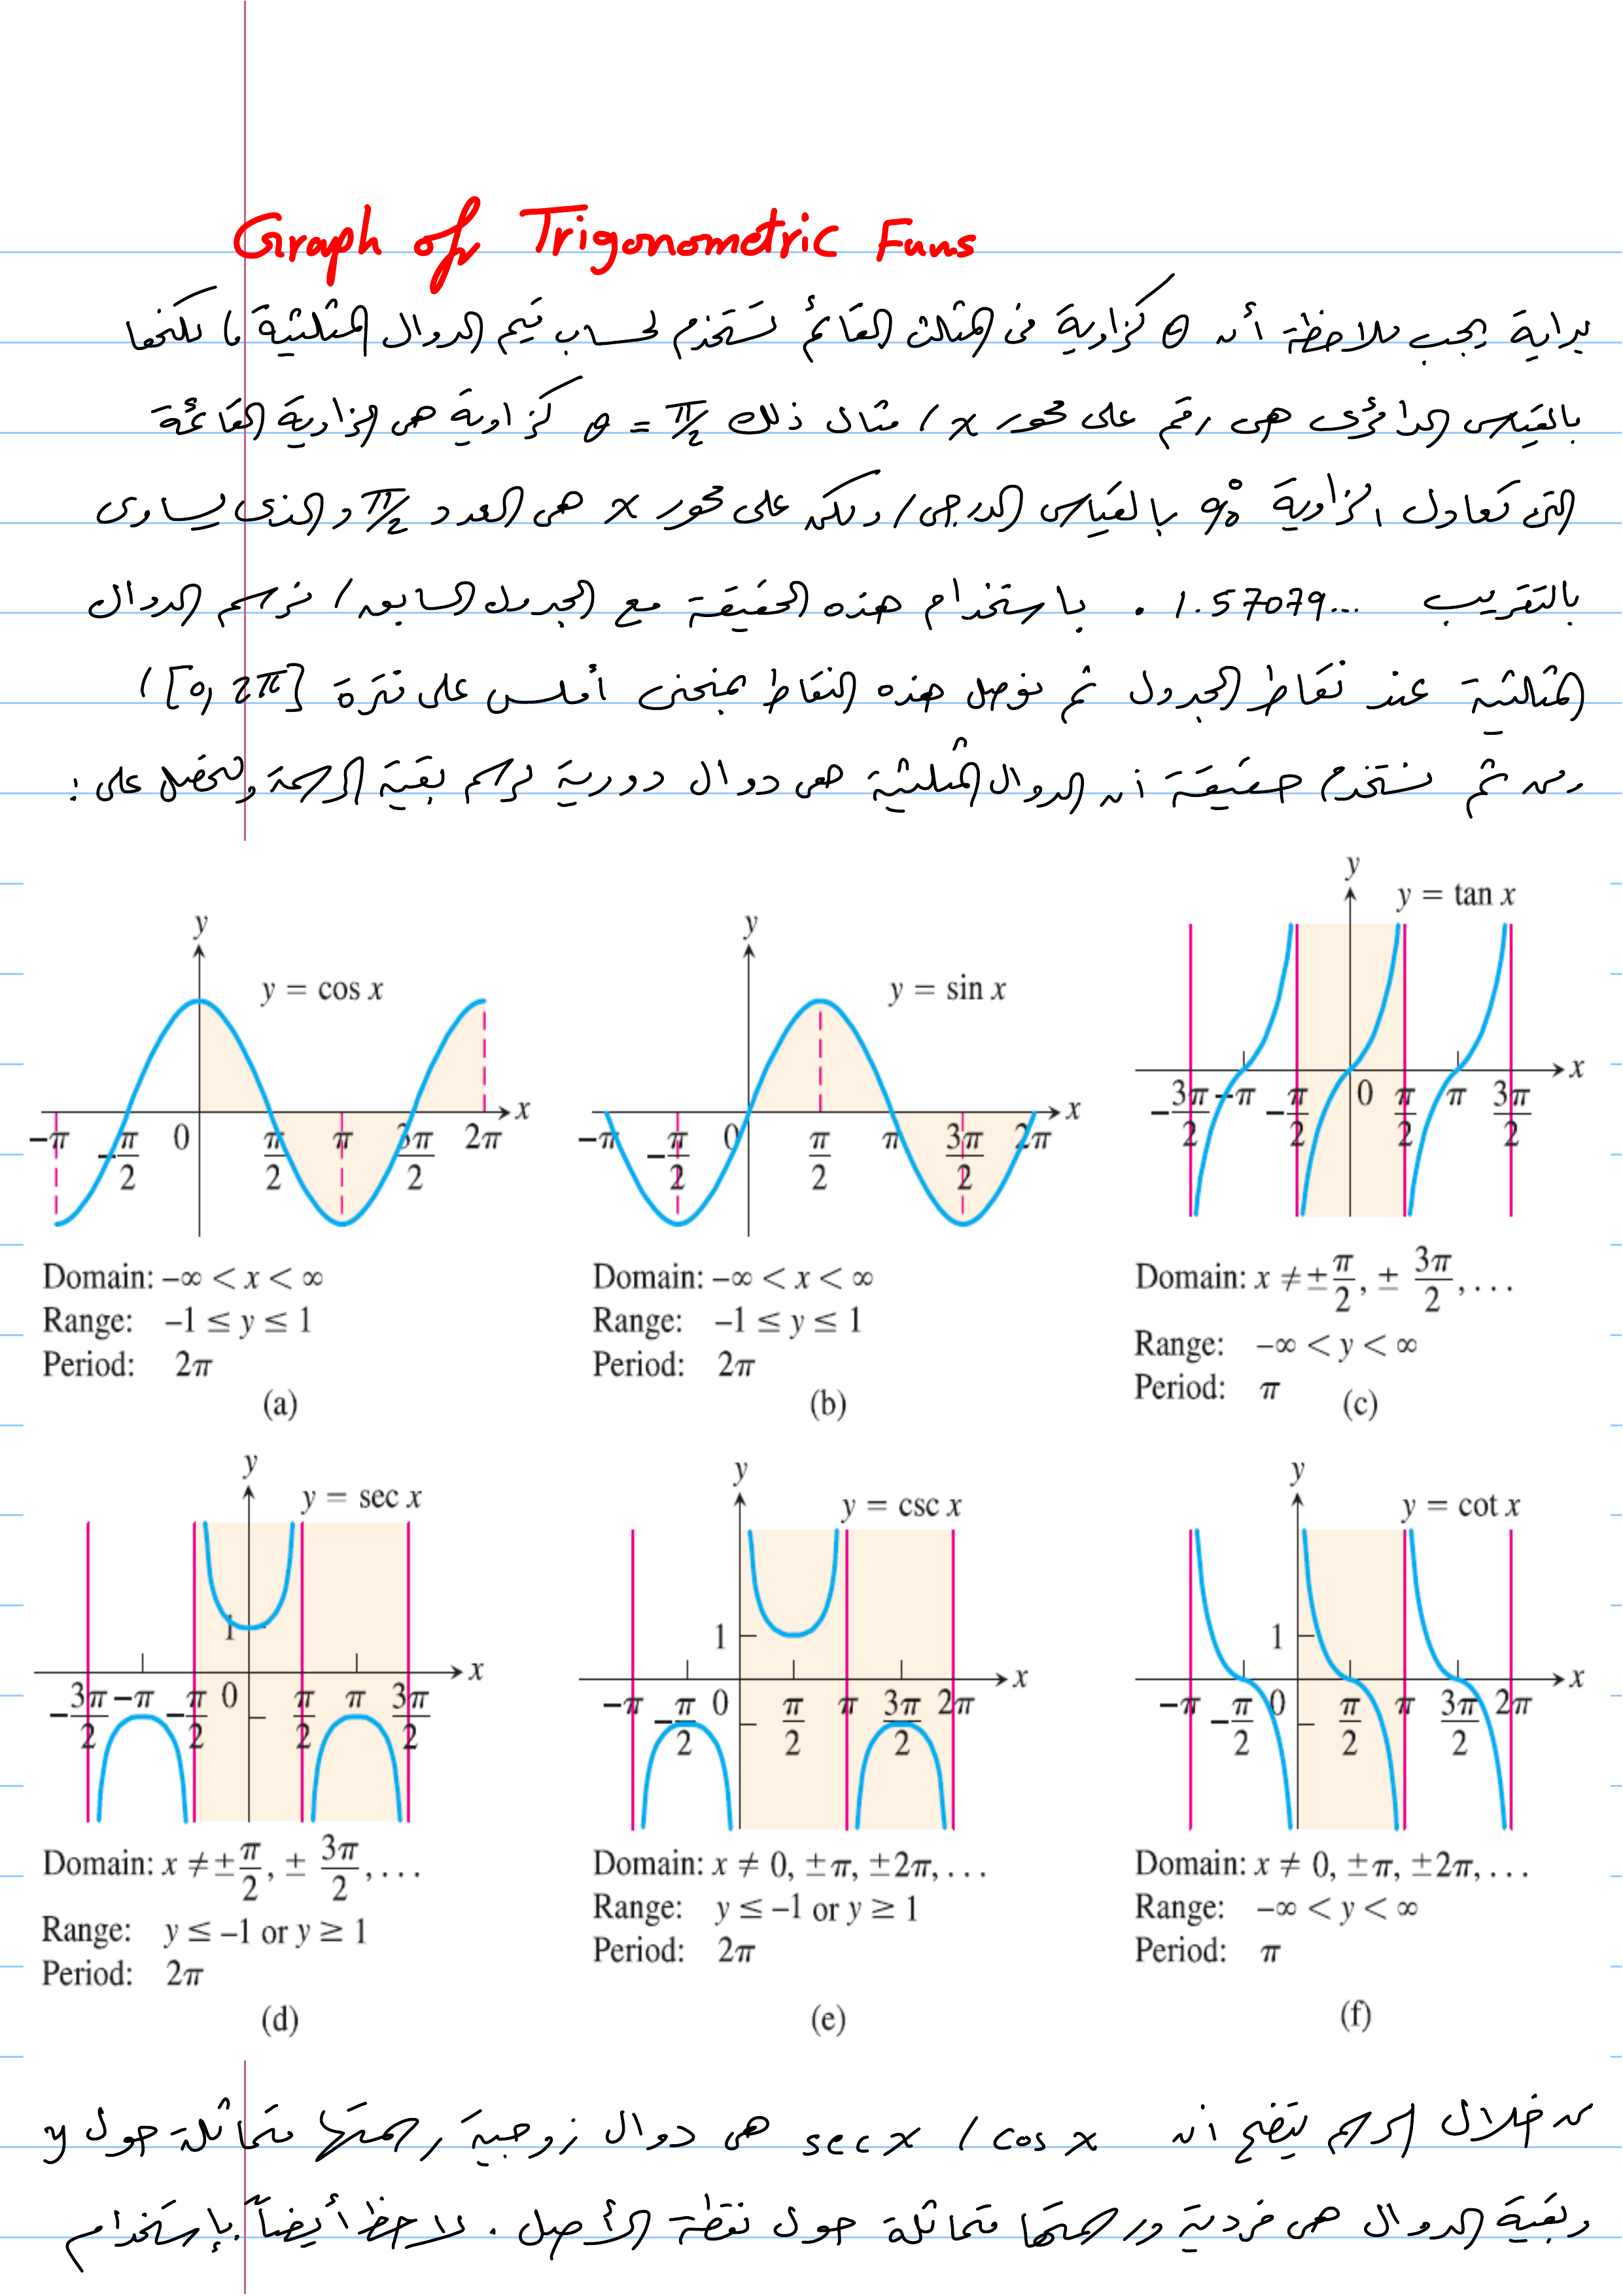 Graph of Trigonometric Funs
بداية يجب ملاحظة أن θ كزاوية في المثلث القائم تستخدم لحساب قيم الدوال المثلثية، لكنها
بالقياس الدائري هي رقم على محور x، مثال ذلك θ = π/2 كزاوية هي الزاوية القائمة
التي تعادل الزاوية 90° بالقياس الدرجي، ولكن على محور x هي العدد π/2 والذي يساوي
بالتقريب 1.57079... . باستخدام هذه الحقيقة مع الجدول السابق، نرسم الدوال
المثلثية عند نقاط الجدول ثم نوصل هذه النقاط بمنحنى أملس على فترة [0, 2π]،
ومن ثم نستخدم حقيقة أن الدوال المثلثية هي دوال دورية لرسم بقية الرسمة ونحصل على:
y = cos x
y
x
−π −π/2 0 π/2 π 3π/2 2π
Domain: −∞ < x < ∞
Range: −1 ≤ y ≤ 1
Period: 2π
(a)
y = sin x
y
x
−π −π/2 0 π/2 π 3π/2 2π
Domain: −∞ < x < ∞
Range: −1 ≤ y ≤ 1
Period: 2π
(b)
y = tan x
y
x
−3π/2 −π −π/2 0 π/2 π 3π/2
Domain: x ≠ ±π/2, ± 3π/2, . . .
Range: −∞ < y < ∞
Period: π
(c)
y = sec x
y
1
x
−3π/2 −π −π/2 0 π/2 π 3π/2
Domain: x ≠ ±π/2, ± 3π/2, . . .
Range: y ≤ −1 or y ≥ 1
Period: 2π
(d)
y = csc x
y
1
x
−π −π/2 0 π/2 π 3π/2 2π
Domain: x ≠ 0, ±π, ±2π, . . .
Range: y ≤ −1 or y ≥ 1
Period: 2π
(e)
y = cot x
y
1
x
−π −π/2 0 π/2 π 3π/2 2π
Domain: x ≠ 0, ±π, ±2π, . . .
Range: −∞ < y < ∞
Period: π
(f)
من خلال الرسم يتضح أن cos x، sec x هي دوال زوجية رسمتها متماثلة حول y
وبقية الدوال هي فردية ورسمتها متماثلة حول نقطة الأصل. لاحظ أيضاً بإستخدام